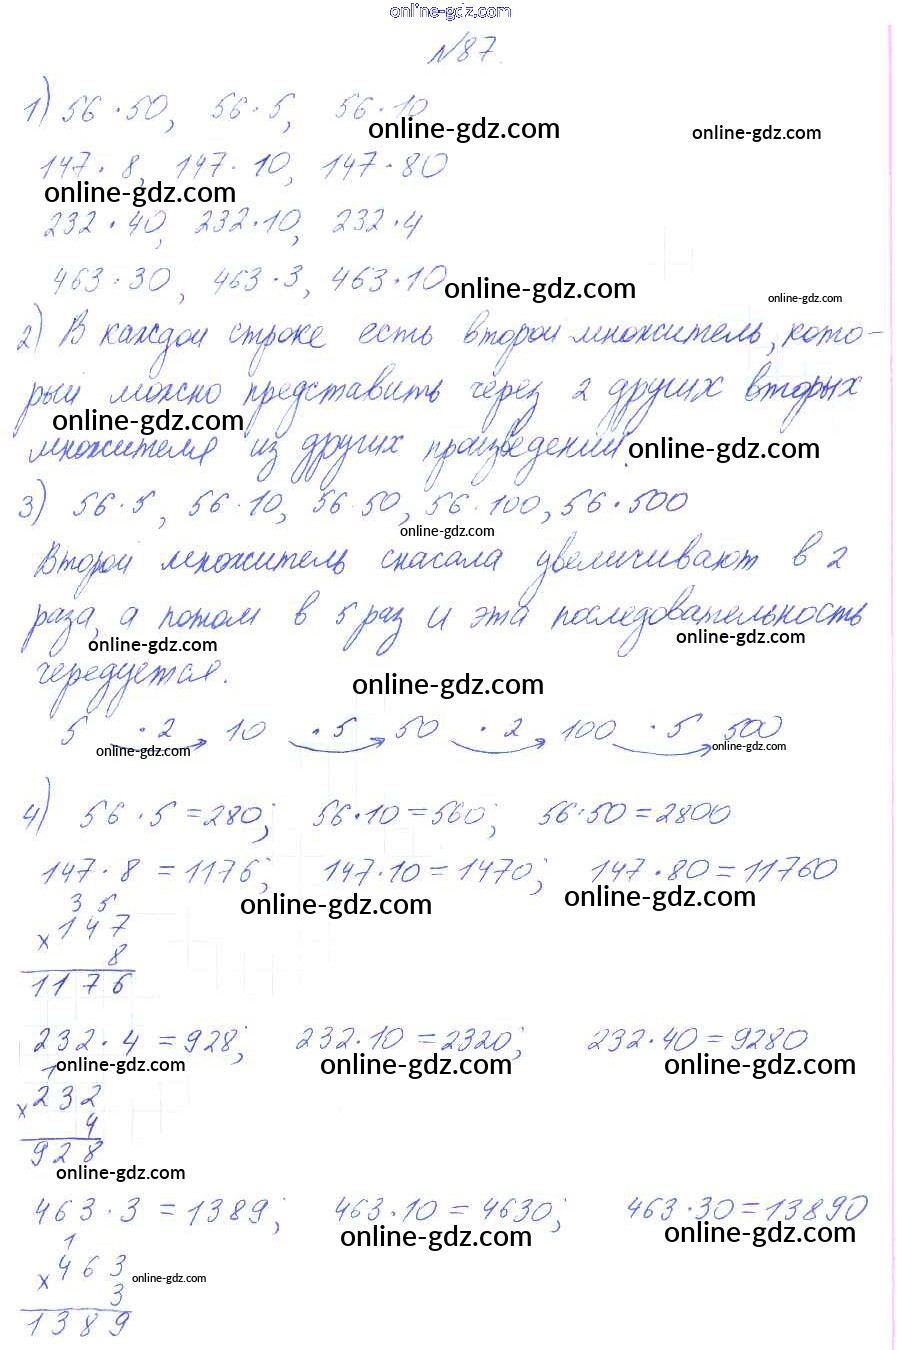 online-gdz.com
№87.
1) 56·50, 56·5, 56·10
online-gdz.com
online-gdz.com
147·8, 147·10, 147·80
online-gdz.com
232·40, 232·10, 232·4
463·30, 463·3, 463·10
online-gdz.com
online-gdz.com
2) В каждой строке есть второй множитель, кото-
рый можно представить через 2 других вторых
online-gdz.com
множителя из других произведений.
online-gdz.com
3) 56·5, 56·10, 56·50, 56·100, 56·500
online-gdz.com
Второй множитель снасала увеличивают в 2
раза, а потом в 5 раз и эта последовательность
online-gdz.com
online-gdz.com
чередуется.
online-gdz.com
5 ·2 10 ·5 50 ·2 100 ·5 500
online-gdz.com
online-gdz.com
4) 56·5=280; 56·10=560; 56·50=2800
147·8=1176; 147·10=1470; 147·80=11760
online-gdz.com
online-gdz.com
3 5
×147
8
1176
232·4=928; 232·10=2320; 232·40=9280
online-gdz.com
online-gdz.com
online-gdz.com
1
×232
4
928
online-gdz.com
463·3=1389; 463·10=4630; 463·30=13890
online-gdz.com
online-gdz.com
1
×463
online-gdz.com
3
1389